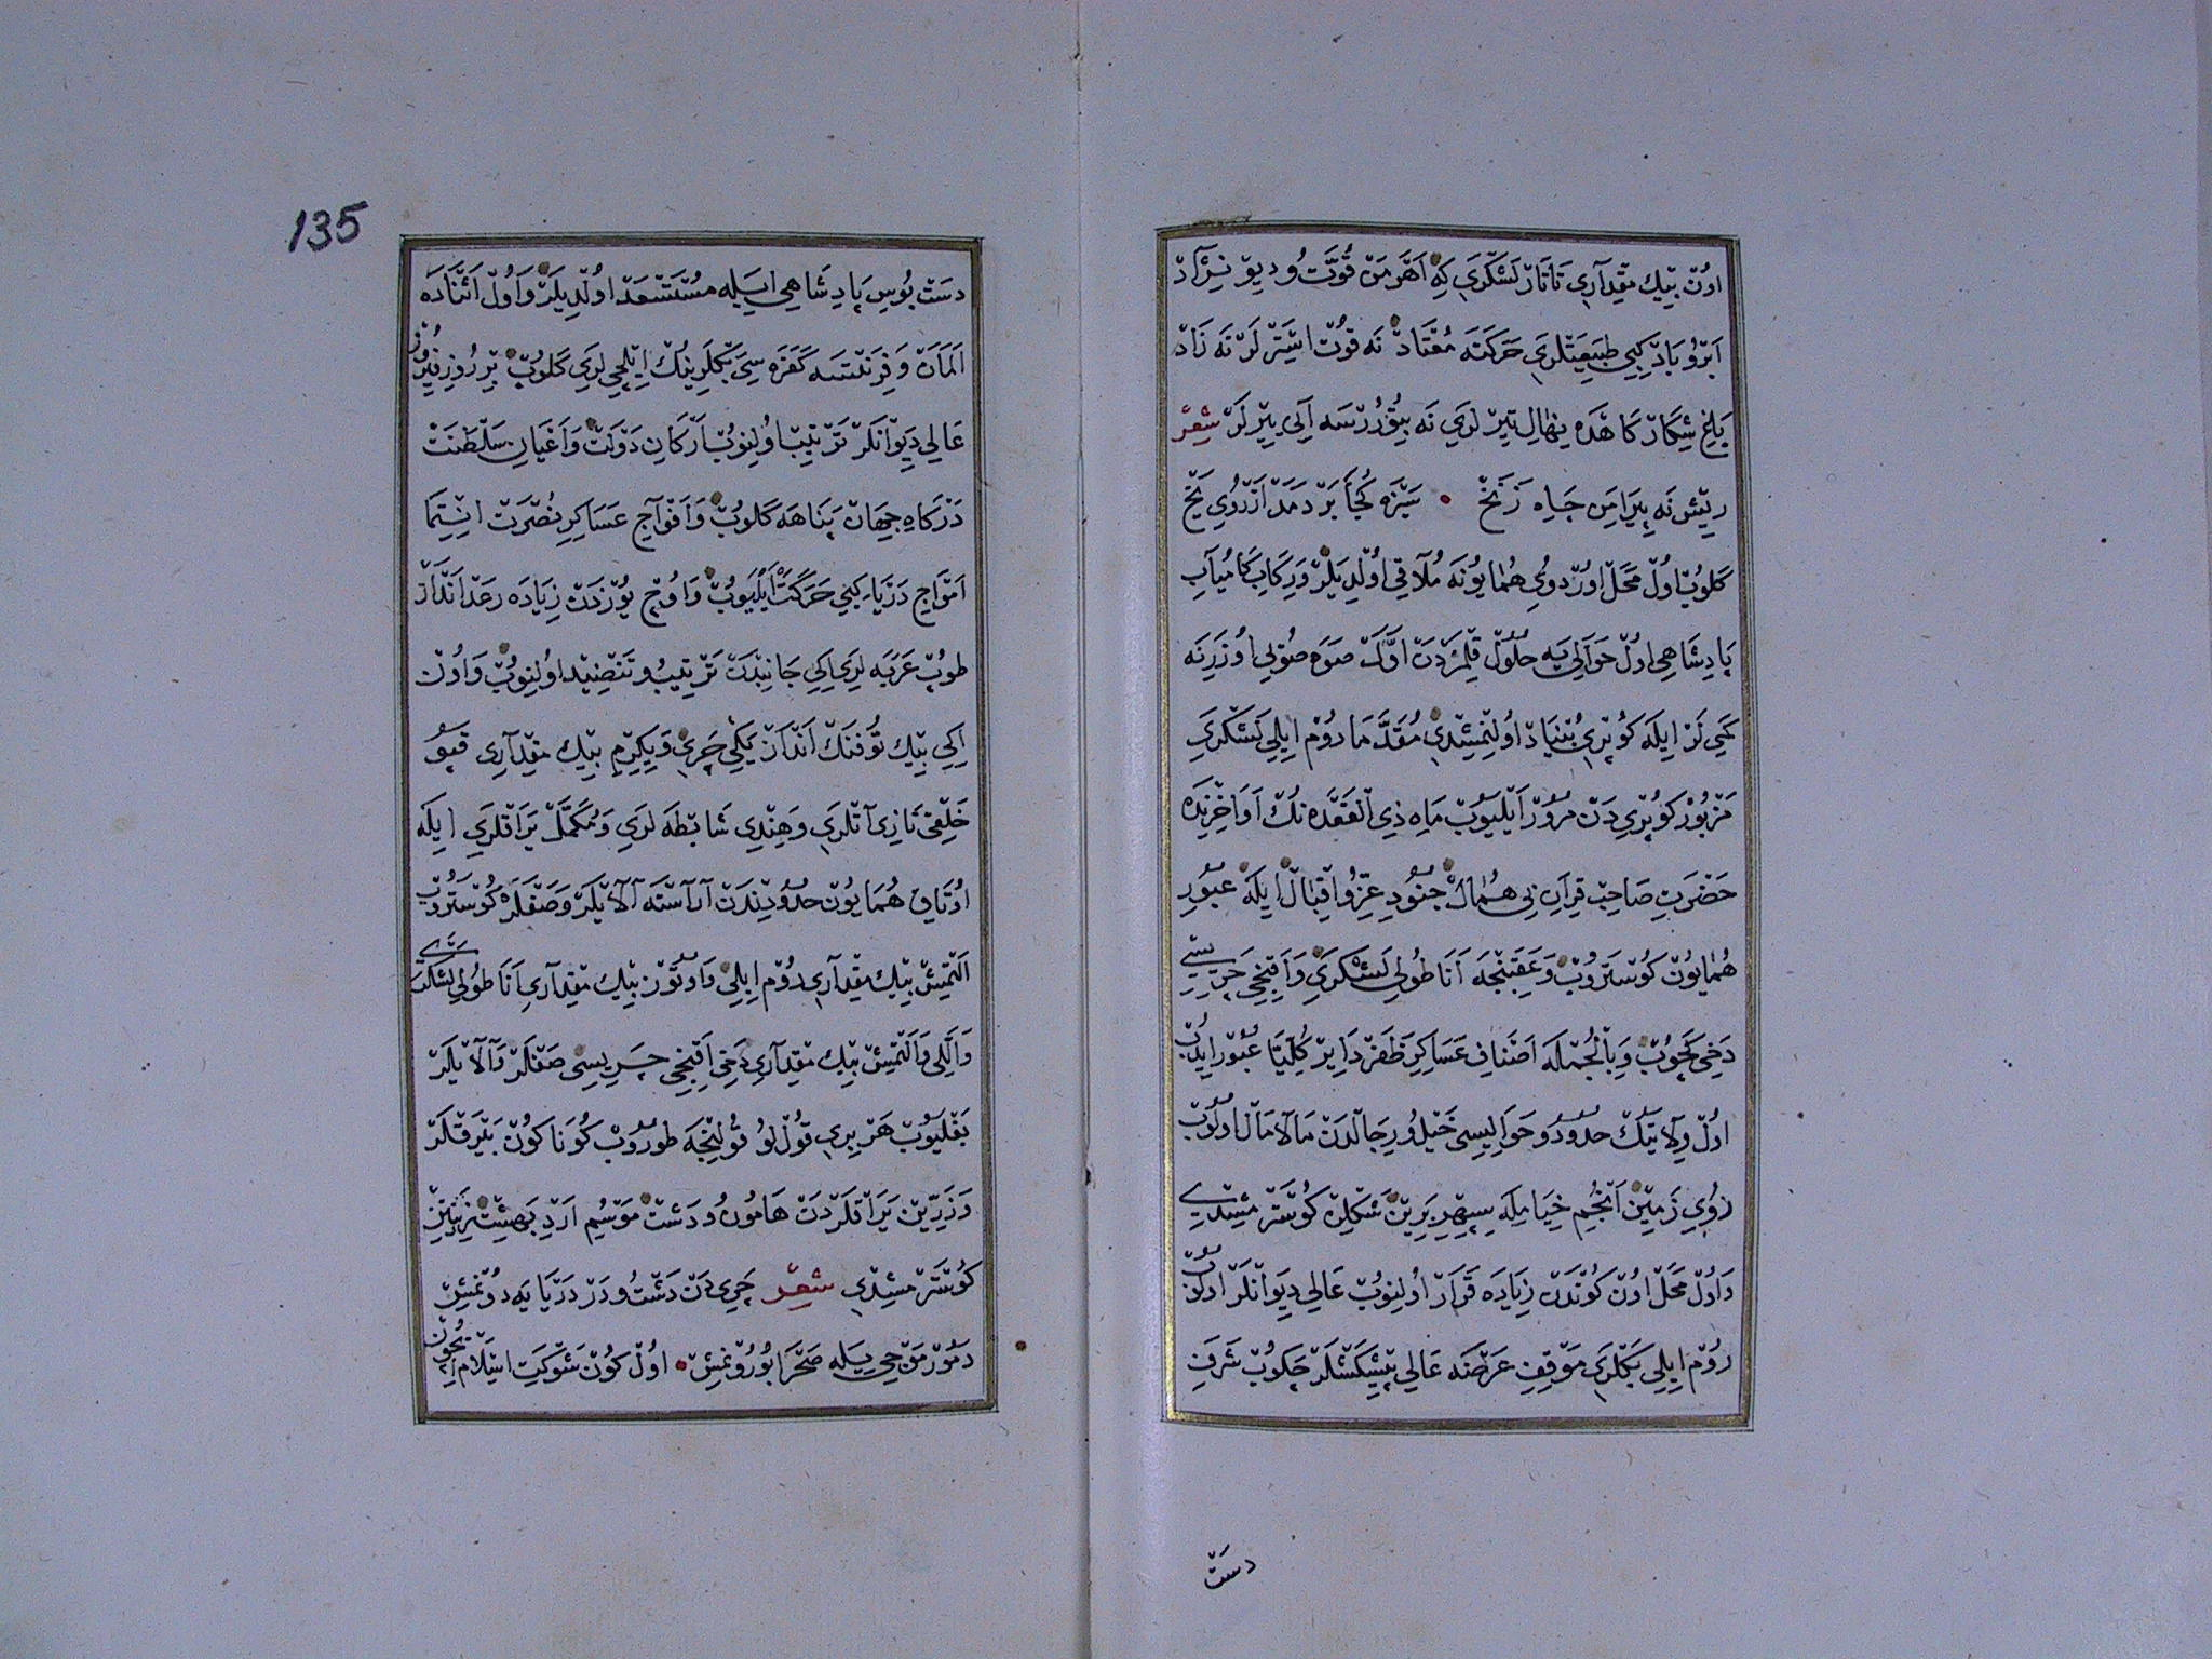 اون بيك مقداري تاتار لشكري كه اهرمن قوت و ديو نژاد
ابر و باد كبي طبيعتلري حركته معتاد نه قوت استرلر نه زاد
يلغ شكار كاهده نهال تير لري نه بيقوررسه آلي ييرلر شعر
ريش نه پيرامن چاه زنخ • سبزه كجا بر دمد از روي يخ
كلوب اول محل اوردوي همايونه ملاقي اولديلر و ركاب كامياب
پادشاهي اول حواليه حلول قلمزدن اول صوه صولي اوزرينه
كمي لر ايله كوپري بنياد اولنمشدي مقدما روم ايلي لشكري
مزبور كوپري دن مرور ايليوب ماه ذي القعده نك اواخرنده
حضرت صاحب قران بي همال جنود عز و اقبال ايله عبور
همايون كوستروب و عقبنجه اناطولي لشكري و اقنجي چريسي
دخي كچوب و بالجمله اصناف عساكر ظفر داير كليا عبور ايدوب
اول ولايتك حدود و حواليسي خيل و رجالدن مالامال اولوب
روي زمين انجم خيامله سپهر برين شكلن كوسترمشدي
و اول محل اون كوندن زياده قرار اولنوب عالي ديوانلر اولنوب
روم ايلي بكلري موقف عرضنه عالي پيشكشلر چكوب شرف
دست
135
دست بوس پادشاهي ايله مستسعد اولديلر و اول اثناده
المان و فرنتسه كفره سي بكلرينك ايلچي لري كلوب بر روز فيروز
عالي ديوانلر ترتيب اولنوب اركان دولت و اعيان سلطنت
دركاه جهان پناهه كلوب و افواج عساكر نصرت انتما
امواج درياء كبي حركت ايليوب و اوچ يوزدن زياده رعد انداز
طوب عربه لري ايكي جانبدن ترتيب و تنضيد اولنوب و اون
ايكي بيك توفنك انداز يكي چري و يكرمي بيك مقداري قپو
خلقي تازي آتلري و هندي شابطه لري و مكمل يراقلري ايله
اوتاق همايون حدودندن آراسته آلايلر و صفلر كوستروب
التمش بيك مقداري روم ايلي و اوتوز بيك مقداري اناطولي لشكري
و اللي و التمش بيك مقداري دخي اقنجي چريسي صفلر و آلايلر
بغليوب هر بري قول لو قولنجه طوروب كوناكون بيرقلر
و زرين يراقلردن هامون و دشت موسم ارديبهشت زينتين
كوسترمشدي شعر چري دن دشت و در دريايه دونمش
دمور موجي يله صحرا بورونمش • اول كون شوكت اسلام ايچون